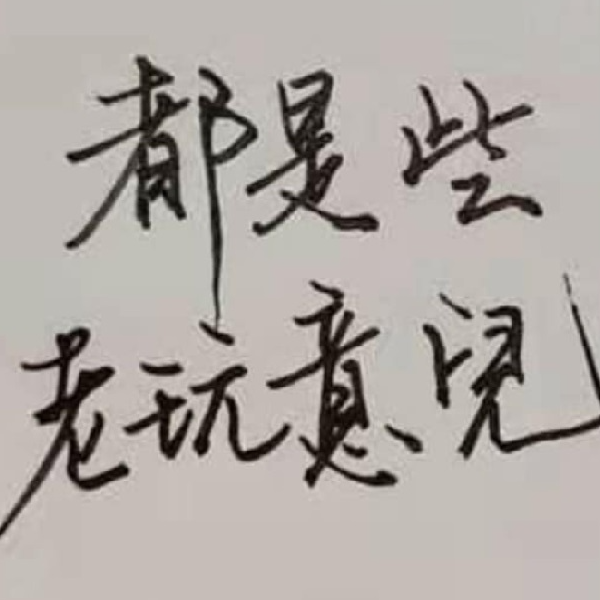 都是些
老玩意兒